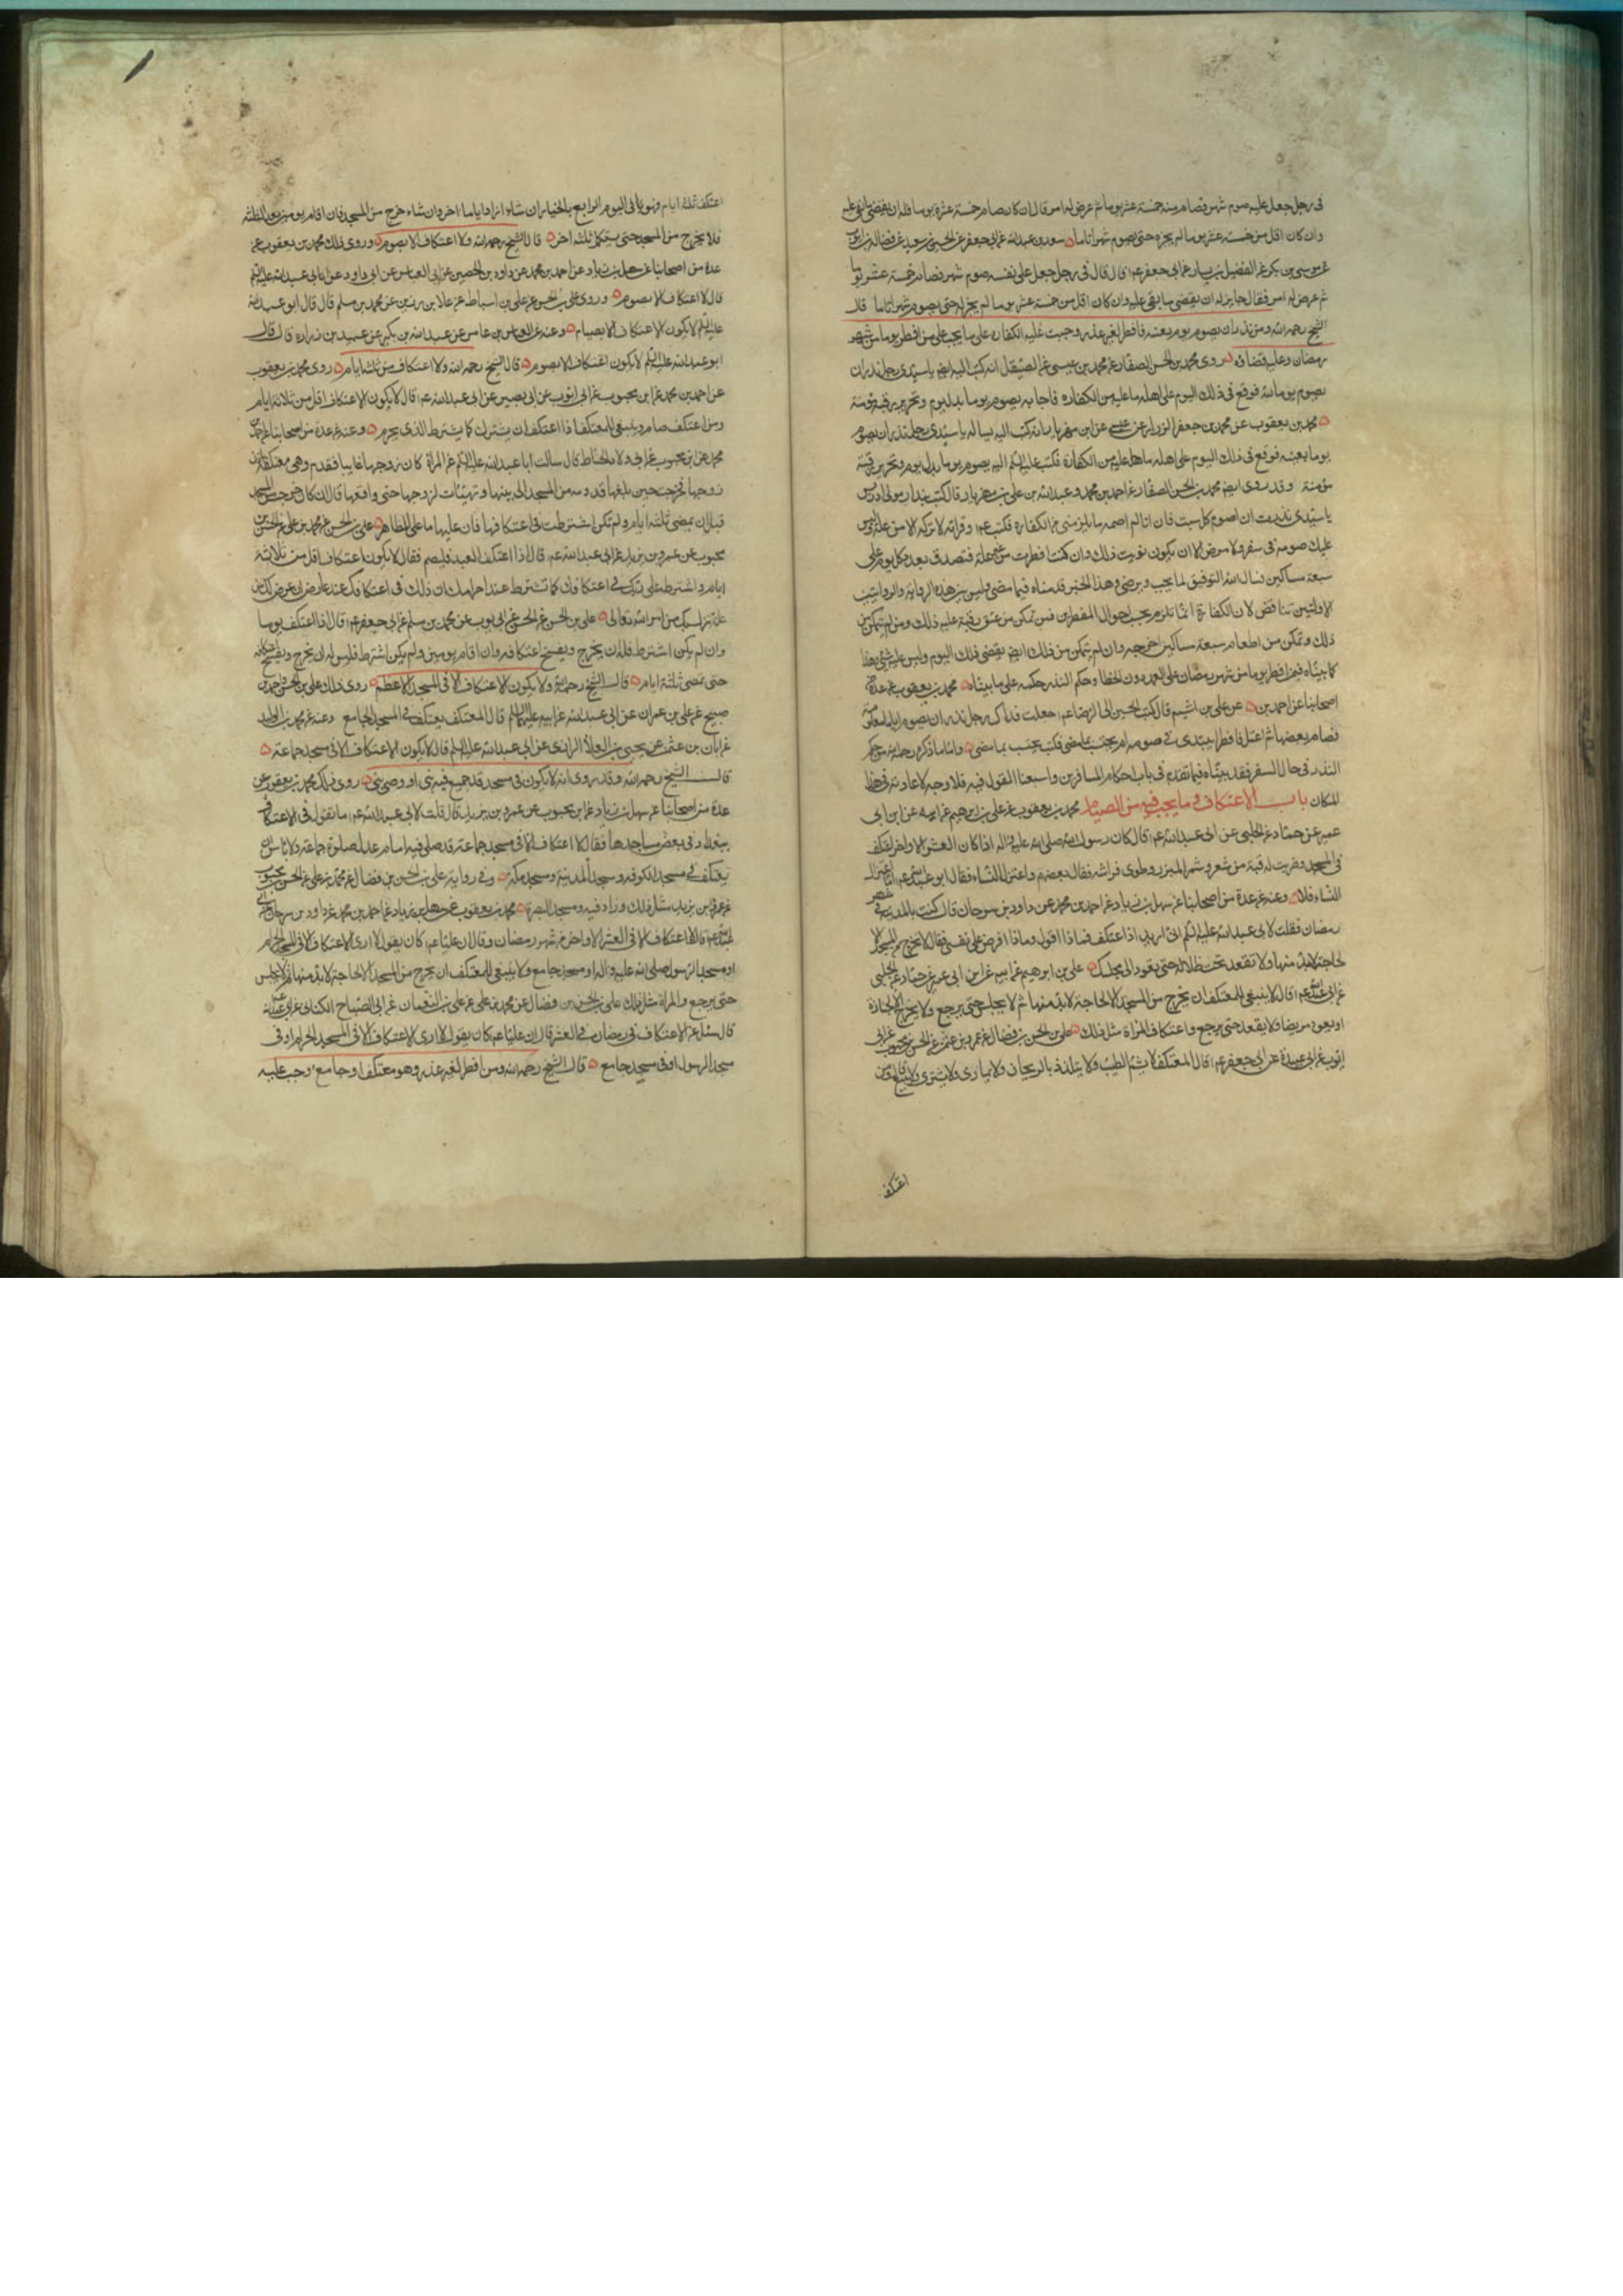 فى رجل جعل عليه صوم شهر فصام منه خمسة عشر يوما ثم عرض له امر قال ان كان صام خمسة عشر يوما فله ان يقضى ما بقى عليه
وان كان اقل من خمسة عشر يوما لم يجزه حتى يصوم شهرا تاما سعد بن عبد الله عن ابى جعفر عن الحسين بن سعيد عن فضالة بن ايوب
عن موسى بن بكر عن الفضيل بن يسار عن ابى جعفر ع قال قال فى رجل جعل على نفسه صوم شهر فصام خمسة عشر يوما
ثم عرض له امر فقال جايز له ان يقضى ما بقى عليه وان كان اقل من خمسة عشر يوما لم يجز له حتى يصوم شهرا تاما قال
الشيخ رحمه الله ومن نذر ان يصوم يوما بعينه فافطر لغير عذر وجبت عليه الكفارة على ما يجب على من افطر يوما من شهر
رمضان وعليه قضاؤه روى محمد بن الحسن الصفار عن محمد بن عيسى عن الصيقل انه كتب اليه ايضا يا سيدى رجل نذر ان
يصوم يوما لله فوقع فى ذلك اليوم على اهله ما عليه من الكفارة فاجابه يصوم يوما بدل يوم وتحرير رقبة مؤمنة
محمد بن يعقوب عن محمد بن جعفر الرزاز عن عيسى عن ابن مهزيار انه كتب اليه يساله يا سيدى رجل نذر ان يصوم
يوما بعينه فوقع فى ذلك اليوم على اهله ما عليه من الكفارة فكتب عليه السلم اليه يصوم يوما بدل يوم وتحرير رقبة
مؤمنة وقد روى ايضا محمد بن الحسن الصفار عن احمد بن محمد وعبد الله عن على بن مهزيار قال كتب بندار مولى ادريس
يا سيدى نذرت ان اصوم كل سبت فان انا لم اصمه ما يلزمنى من الكفارة فكتب ع وقراته لا تتركه الا من علة وليس
عليك صومه فى سفر ولا مرض الا ان يكون نويت ذلك وان كنت افطرت من غير علة فتصدق بعدد كل يوم على
سبعة مساكين نسال الله التوفيق لما يحب ويرضى وهذا الخبر قدمناه فيما مضى وليس بين هذه الرواية والروايتين
الاولتين تناقض لان الكفارة انما تلزم بحسب احوال المفطرين فمن تمكن من عتق رقبة عليه ذلك ومن لم يتمكن من
ذلك وتمكن من اطعام سبعة مساكين اخرجه وان لم يتمكن من ذلك ايضا يقضى ذلك اليوم وليس عليه شئ
كما بيناه فيمن افطر يوما من شهر رمضان على العمد دون الخطا وحكم النذر حكمه على ما بيناه محمد بن يعقوب عن عدة من
اصحابنا عن احمد بن عن على بن اشيم قال كتب الحسين الى الرضا ع جعلت فداك رجل نذر ان يصوم اياما معلومة
فصام بعضها ثم اعتل فافطر ايبتدى فى صومه ام يحتسب بما مضى فكتب يحتسب بما مضى واما ما ذكره رحمه الله من حكم
النذر فى حال السفر فقد بيناه فيما تقدم فى باب احكام المسافرين واسبغنا القول فيه فلا وجه لاعادته فى هذا
المكان باب الاعتكاف وما يجب فيه من الصيام محمد بن يعقوب عن على بن ابرهيم عن ابيه عن ابن ابى
عمير عن حماد عن الحلبى عن ابى عبد الله ع قال كان رسول الله صلى الله عليه واله اذا كان العشر الاواخر اعتكف
فى المسجد وضربت له قبة من شعر وشمر الميزر وطوى فراشه فقال بعضهم واعتزل النساء فقال ابو عبد الله ع اما اعتزال
النساء فلا وعنه عن عدة من اصحابنا عن سهل بن زياد عن احمد بن محمد عن داود بن سرحان قال كنت بالمدينة فى شهر
رمضان فقلت لابى عبد الله عليه السلم انى اريد ان اعتكف فماذا اقول وماذا افرض على نفسى فقال لا تخرج من المسجد الا
لحاجة لابد منها ولا تقعد تحت ظلال حتى تعود الى مجلسك على بن ابرهيم عن ابيه عن ابن ابى عمير عن حماد عن الحلبى
عن ابى عبد الله ع قال لا ينبغى للمعتكف ان يخرج من المسجد الا لحاجة لابد منها ثم لا يجلس حتى يرجع ولا يخرج الا لجنازة
او يعود مريضا ولا يقعد حتى يرجع واعتكاف المراة مثل ذلك على بن الحسن بن فضال عن عمرو بن عثمن عن الحسن بن محبوب عن ابى
ايوب عن ابى عبيدة عن ابى جعفر ع قال المعتكف لا يشم الطيب ولا يتلذذ بالريحان ولا يمارى ولا يشترى ولا يبيع قال ومن
اعتكف
اعتكف ثلثة ايام فهو يوم الرابع بالخيار ان شاء ازداد اياما اخر وان شاء خرج من المسجد فان اقام يومين بعد الثلثة
فلا يخرج من المسجد حتى يستكمل ثلثة اخر قال الشيخ رحمه الله ولا اعتكاف الا بصوم وروى ذلك محمد بن يعقوب عن
عدة من اصحابنا عن سهل بن زياد عن احمد بن محمد عن داود بن الحصين عن ابى العباس عن ابى داود عن ابى عبد الله عليه السلم
قال لا اعتكاف الا بصوم وروى على بن الحسن عن على بن اسباط عن علا بن رزين عن محمد بن مسلم قال قال ابو عبد الله
عليه السلم لا يكون الاعتكاف الا بصيام وعنه عن العباس بن عامر عن عبد الله بن بكير عن عبيد بن زرارة قال قال
ابو عبد الله عليه السلم لا يكون اعتكاف الا بصوم قال الشيخ رحمه الله ولا اعتكاف من ثلثة ايام روى محمد بن يعقوب
عن احمد بن محمد عن ابن محبوب عن ابى ايوب عن ابى بصير عن ابى عبد الله ع قال لا يكون الاعتكاف اقل من ثلاثة ايام
ومن اعتكف صام وينبغى للمعتكف اذا اعتكف ان يشترط كما يشترط الذى يحرم وعنه عن عدة من اصحابنا عن احمد بن
محمد عن ابن محبوب عن ابى ولاد الحناط قال سالت ابا عبد الله عليه السلم عن المراة كان زوجها غايبا فقدم وهى معتكفة باذن
زوجها فخرجت حين بلغها قدومه من المسجد الى بيتها وتهيئات لزوجها حتى واقعها قال ان كان خرجت من المسجد
قبل ان يمضى ثلثة ايام ولم تكن اشترطت فى اعتكافها فان عليها ما على المظاهر على بن الحسن عن محمد بن على عن الحسن بن
محبوب عن عمر بن يزيد عن ابى عبد الله ع قال اذا اعتكف العبد فليصم فقال لا يكون اعتكاف اقل من ثلاثة
ايام واشترط على ربك فى اعتكافك كما تشترط عند احرامك ان ذلك فى اعتكافك عند عارض ان عرض لك من
علة تنزل بك من امر الله تعالى على بن الحسن عن الحسن عن ابى ايوب عن محمد بن مسلم عن ابى جعفر ع قال اذا اعتكف يوما
وان لم يكن اشترط فله ان يخرج ويفسخ اعتكافه وان اقام يومين ولم يكن اشترط فليس له ان يخرج ويفسخ اعتكافه
حتى تمضى ثلثة ايام قال الشيخ رحمه الله ولا يكون الاعتكاف الا فى المسجد الاعظم روى ذلك على بن الحسن عن احمد بن
صبيح عن على بن عمران عن ابى عبد الله عن ابيه عليهما السلم قال المعتكف يعتكف فى المسجد الجامع وعنه عن محمد بن الوليد
عن ابان بن عثمن عن يحيى بن العلا الرازى عن ابى عبد الله عليه السلم قال لا يكون الاعتكاف الا فى مسجد جماعة
قال الشيخ رحمه الله وقد روى انه لا يكون فى مسجد قد جمع فيه نبى او وصى نبى روى ذلك محمد بن يعقوب عن
عدة من اصحابنا عن سهل بن زياد عن ابن محبوب عن عمر بن يزيد قال قلت لابى عبد الله ع ما تقول فى الاعتكاف
ببغداد فى بعض مساجدها فقال لا اعتكاف الا فى مسجد جماعة قد صلى فيه امام عدل صلوة جماعة ولا باس ان
يعتكف فى مسجد الكوفة ومسجد المدينة ومسجد مكة وفى رواية على بن الحسن بن فضال عن محمد بن على عن الحسن بن محبوب
عن عمر بن يزيد مثل ذلك وزاد فيه ومسجد البصرة محمد بن يعقوب عن سهل بن زياد عن احمد بن محمد عن داود بن سرحان عن ابى
عبد الله ع قال لا اعتكاف الا فى العشر الاواخر من شهر رمضان وقال ان عليا ع كان يقول لا ارى الاعتكاف الا فى المسجد الحرام
او مسجد الرسول صلى الله عليه واله او مسجد جامع ولا ينبغى للمعتكف ان يخرج من المسجد الا لحاجة لابد منها ثم لا يجلس
حتى يرجع والمراة مثل ذلك على بن الحسن بن فضال عن محمد بن على عن على بن النعمان عن ابى الصباح الكنانى عن ابى عبد الله
قال سئل عن الاعتكاف فى رمضان فى العشر قال ان عليا ع كان يقول لا ارى الاعتكاف الا فى المسجد الحرام او فى
مسجد الرسول او فى مسجد جامع قال الشيخ رحمه الله ومن افطر لغير عذر وهو معتكف او جامع وجب عليه